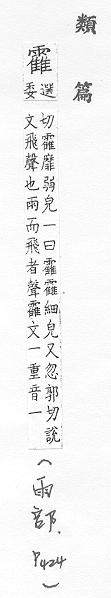 類篇
靃選委
切靃靡弱皃一曰靃靃細皃又忽郭切說
文飛聲也雨而飛者聲靃文一重音一
(雨部、P424)